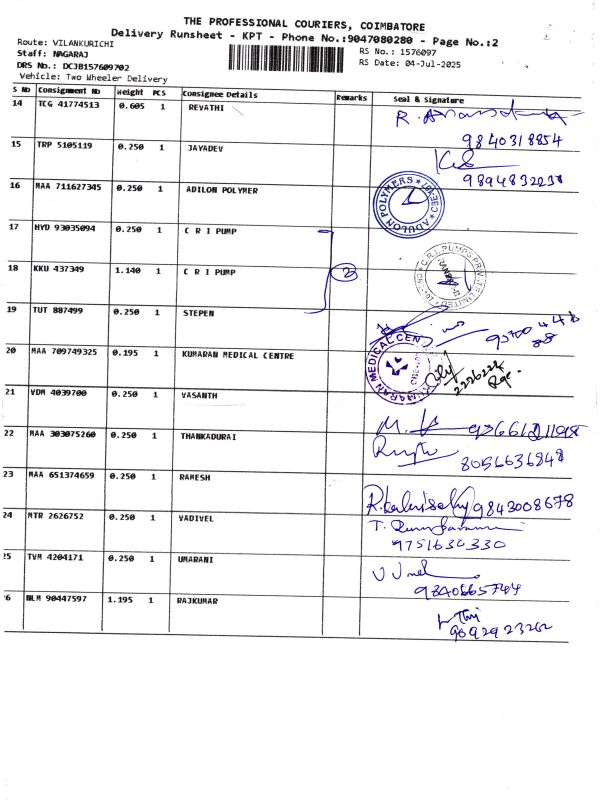 THE PROFESSIONAL COURIERS, COIMBATORE
Delivery Runsheet - KPT - Phone No.:9047080280 - Page No.:2
Route: VILANKURICHI
RS No.: 1576097
Staff: NAGARAJ
RS Date: 04-Jul-2025
DRS No.: DCJB157609702
Vehicle: Two Wheeler Delivery
S No Consignment No Weight PCS Consignee Details Remarks Seal & Signature
14 TCG 41774513 0.605 1 REVATHI
9840318854
15 TRP 5105119 0.250 1 JAYADEV
9894832238
16 MAA 711627345 0.250 1 ADILON POLYMER
17 HYD 93035094 0.250 1 C R I PUMP
18 KKU 437349 1.140 1 C R I PUMP 2
19 TUT 887499 0.250 1 STEPEN
20 MAA 709749325 0.195 1 KUMARAN MEDICAL CENTRE
21 VDM 4039700 0.250 1 VASANTH
22 MAA 303075260 0.250 1 THANKADURAI
8056636848
23 MAA 651374659 0.250 1 RAMESH
9843008678
24 MTR 2626752 0.250 1 VADIVEL
9751630330
25 TVM 4204171 0.250 1 UMARANI
9840665744
26 NLM 90447597 1.195 1 RAJKUMAR
9092923262